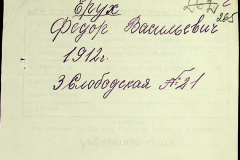 Ерух
Федор Васильевич
1912г.
3 Слободская №21
265